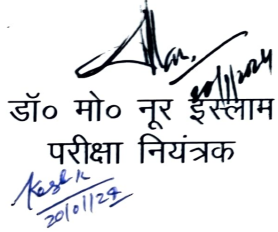 डॉ० मो० नूर इस्लाम
परीक्षा नियंत्रक
20/01/24